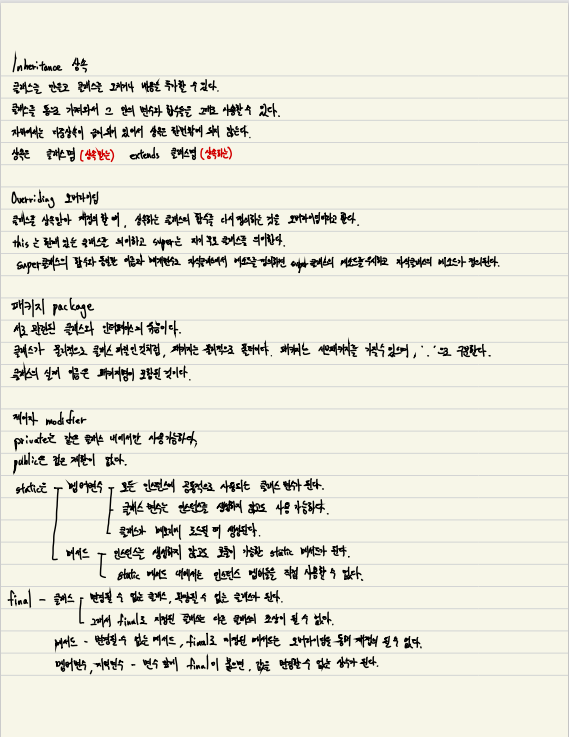 Inheritance 상속
클래스를 만들고 클래스를 고치거나 내용을 추가할 수 있다.
클래스를 통으로 가져와서 그 안의 변수와 함수들을 그대로 사용할 수 있다.
자바에서는 다중상속이 금지되어 있어서 상속은 한번밖에 되지 않는다.
상속은 클래스명 (상속받는) extends 클래스명 (상속하는)
Overriding 오버라이딩
클래스를 상속받아 재정의 할 때, 상속하는 클래스의 함수를 다시 정의하는 것을 오버라이딩이라고 한다.
this는 현재 있는 클래스를 의미하고 super는 자기 부모 클래스를 의미한다.
super클래스의 함수와 동일한 이름과 매개변수로 자식클래스에서 메소드를 정의하면 super클래스의 메소드를 무시하고 자식클래스의 메소드가 정의된다.
패키지 package
서로 관련된 클래스와 인터페이스의 묶음이다.
클래스가 물리적으로 클래스 파일인 것처럼, 패키지는 물리적으로 폴더이다. 패키지는 서브패키지를 가질 수 있으며, '.'으로 구분한다.
클래스의 실제 이름은 패키지명이 포함된 것이다.
제어자 modifier
private은 같은 클래스 내에서만 사용가능하며,
public은 접근 제한이 없다.
static은 멤버변수 모든 인스턴스에 공통적으로 사용되는 클래스 변수가 된다.
클래스 변수는 인스턴스를 생성하지 않고도 사용 가능하다.
클래스가 메모리에 로드될 때 생성된다.
메서드 인스턴스를 생성하지 않고도 호출이 가능한 static 메서드가 된다.
static 메서드 내에서는 인스턴스 멤버들을 직접 사용할 수 없다.
final - 클래스 변경될 수 없는 클래스, 확장될 수 없는 클래스가 된다.
그래서 final로 지정된 클래스는 다른 클래스의 조상이 될 수 없다.
메서드 - 변경될 수 없는 메서드, final로 지정된 메서드는 오버라이딩을 통해 재정의 될 수 없다.
멤버변수, 지역변수 - 변수 앞에 final이 붙으면, 값을 변경할 수 없는 상수가 된다.